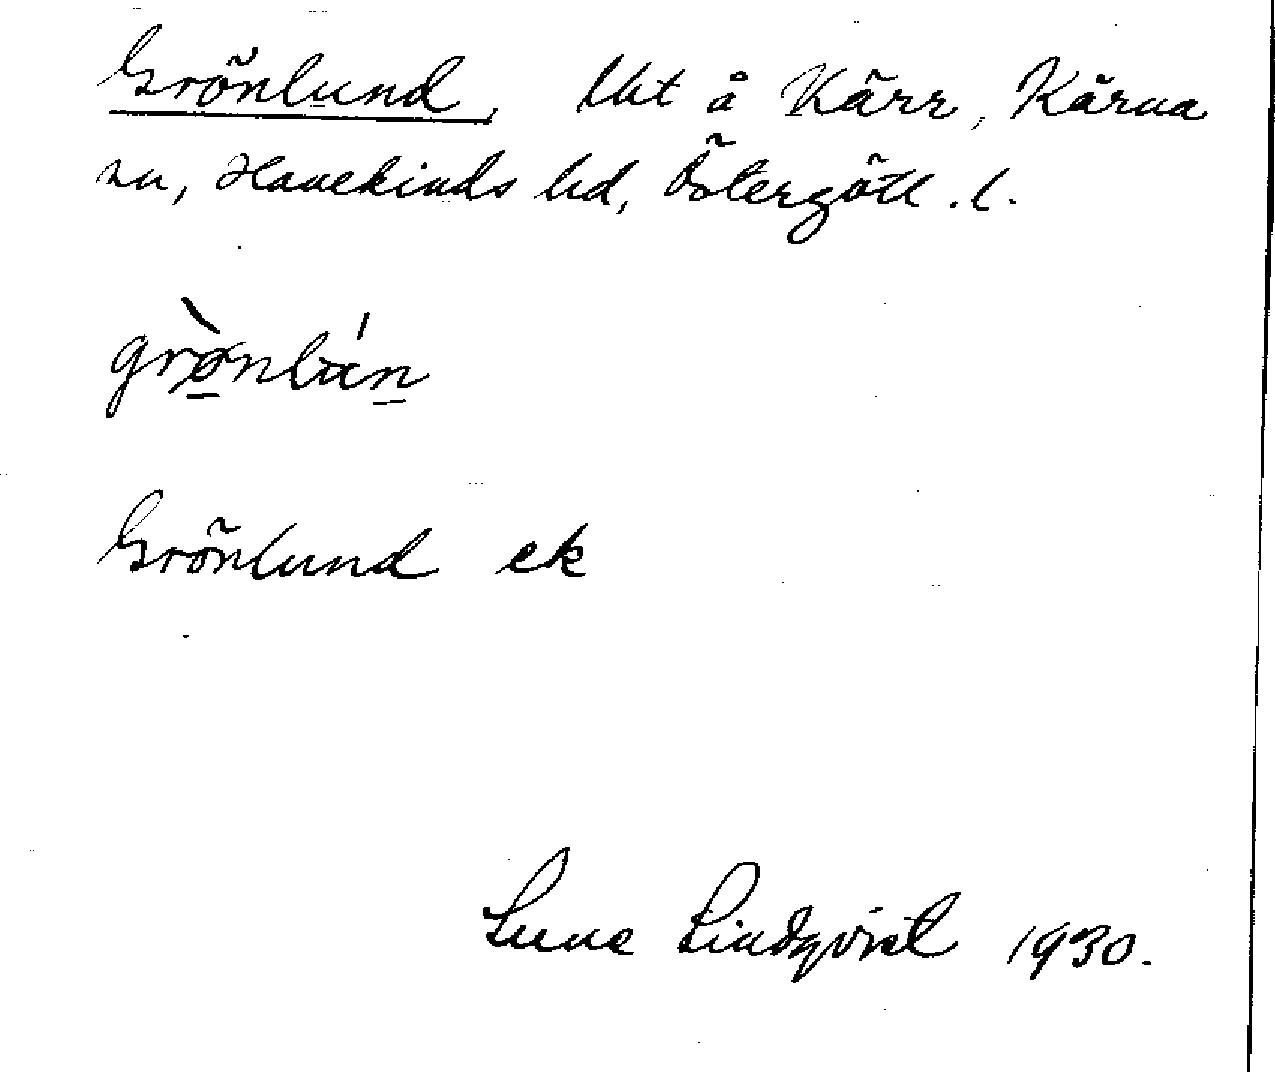 Grönlund, Utt å Kärr, Kärna
sn, Hanekinds hd, Östergötl. l.
grònlún
Grönlund ek
Sune Lindqvist 1930.